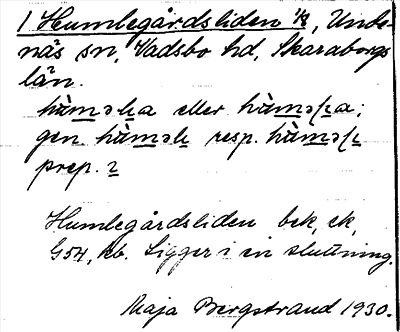 1 Humlegårdsliden 1/8, Unde-
näs sn, Vadsbo hd, Skaraborgs
län.
eller
gen. resp.
prep.
Humlegårdsliden bek, ek,
G54, kb. Ligger i en sluttning.
Maja Bergstrand 1930.